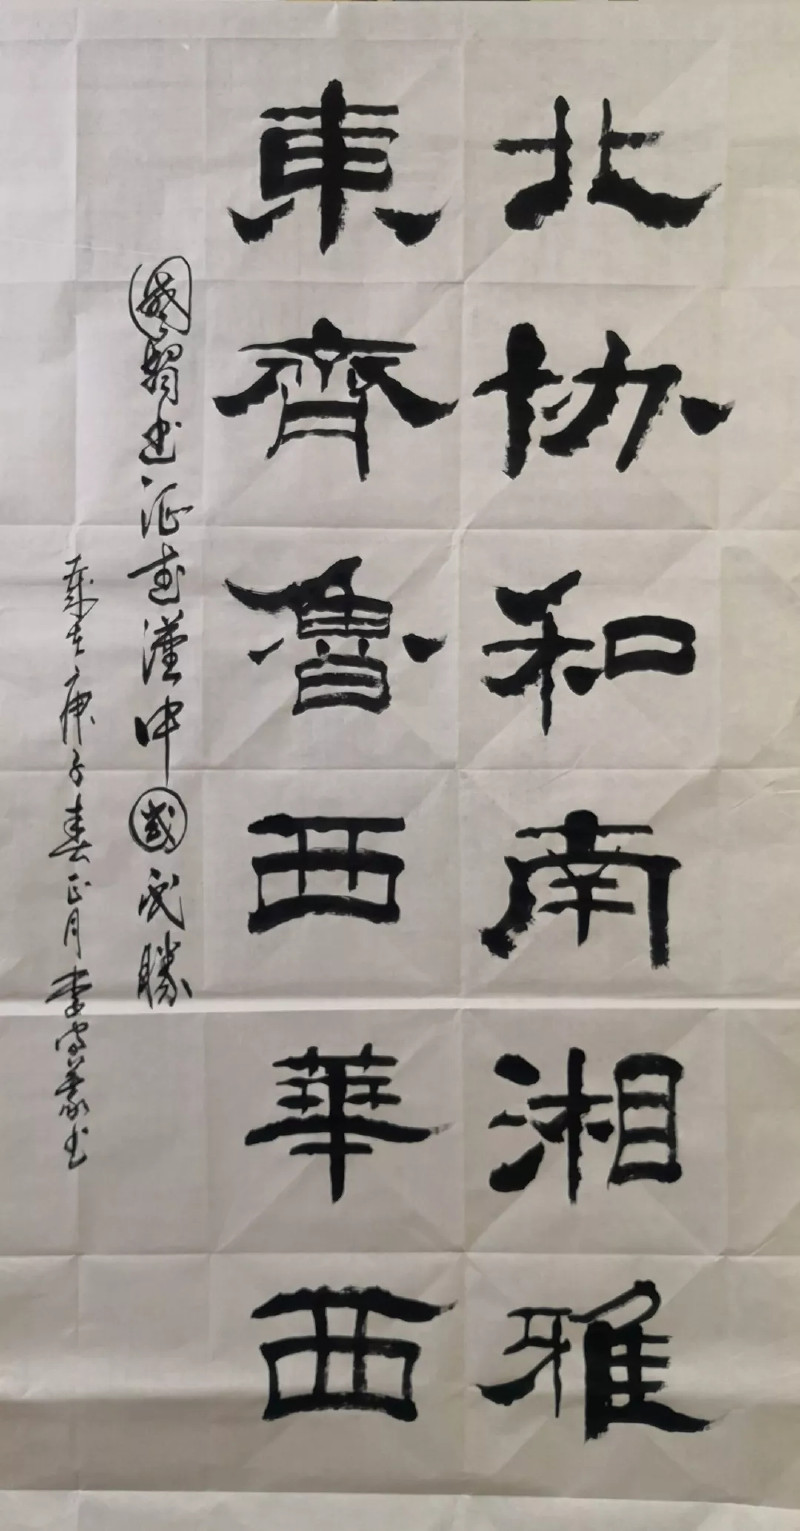 北协和南湘雅
東齊魯西華西
國出征武漢中國勝
歲在庚子春正月李书